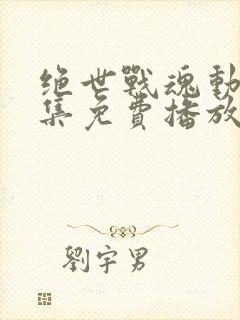 绝世戰魂動
集免費播放
劉宇男